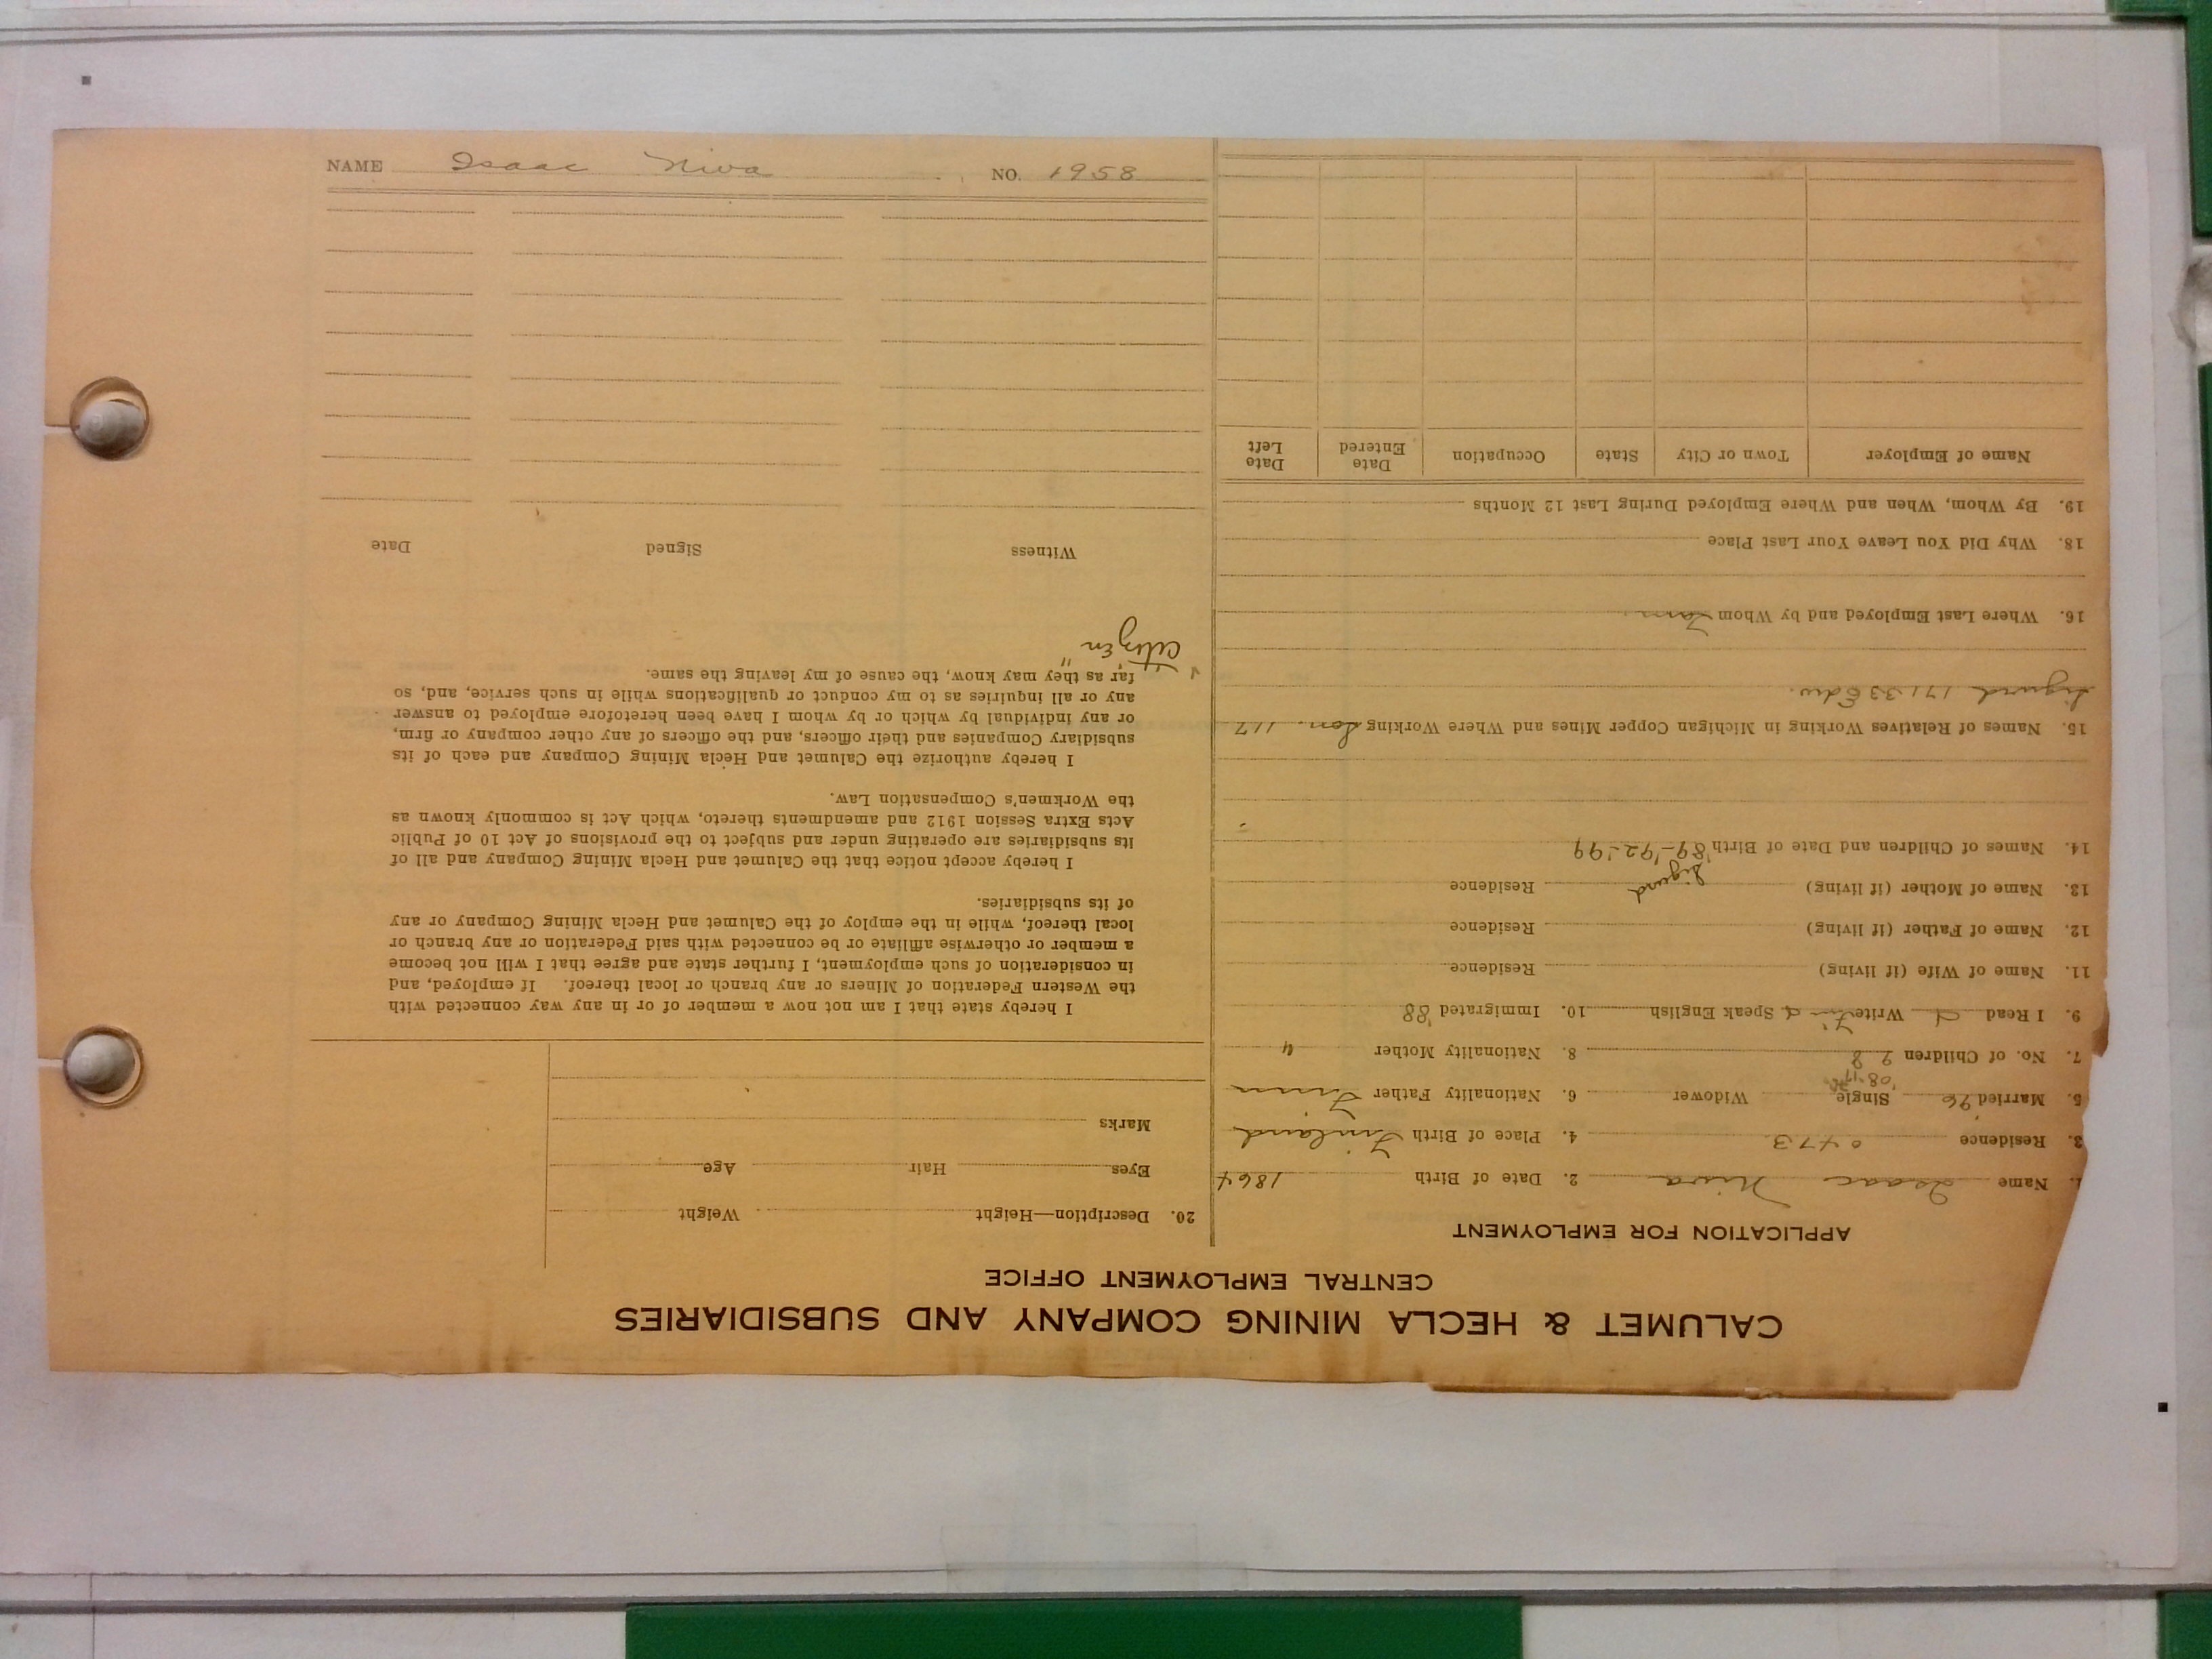 CALUMET & HECLA MINING COMPANY AND SUBSIDIARIES
CENTRAL EMPLOYMENT OFFICE
APPLICATION FOR EMPLOYMENT
1. Name Isaac Niva 2. Date of Birth 1864
3. Residence 0473 4. Place of Birth Finland
5. Married 96 Single Widower 6. Nationality Father Finn
'08-'17
7. No. of Children 28 8. Nationality Mother "
9. I Read Write Speak English 10. Immigrated '88
11. Name of Wife (if living) Residence
12. Name of Father (if living) Residence
13. Name of Mother (if living) Residence
Sigurd
14. Names of Children and Date of Birth '89-'92-'99
15. Names of Relatives Working in Michigan Copper Mines and Where Working Son. 117
Sigurd 17133 Edw.
16. Where Last Employed and by Whom
18. Why Did You Leave Your Last Place
19. By Whom, When and Where Employed During Last 12 Months
Name of Employer Town or City State Occupation Date Entered Date Left
20. Description—Height Weight
Eyes Hair Age
Marks
I hereby state that I am not now a member of or in any way connected with
the Western Federation of Miners or any branch or local thereof. If employed, and
in consideration of such employment, I further state and agree that I will not become
a member or otherwise affiliate or be connected with said Federation or any branch or
local thereof, while in the employ of the Calumet and Hecla Mining Company or any
of its subsidiaries.
I hereby accept notice that the Calumet and Hecla Mining Company and all of
its subsidiaries are operating under and subject to the provisions of Act 10 of Public
Acts Extra Session 1912 and amendments thereto, which Act is commonly known as
the Workmen's Compensation Law.
I hereby authorize the Calumet and Hecla Mining Company and each of its
subsidiary Companies and their officers, and the officers of any other company or firm,
or any individual by which or by whom I have been heretofore employed to answer
any or all inquiries as to my conduct or qualifications while in such service, and, so
far as they may know, the cause of my leaving the same.
Citizen
Witness Signed Date
NAME Isaac Niva NO. 1958